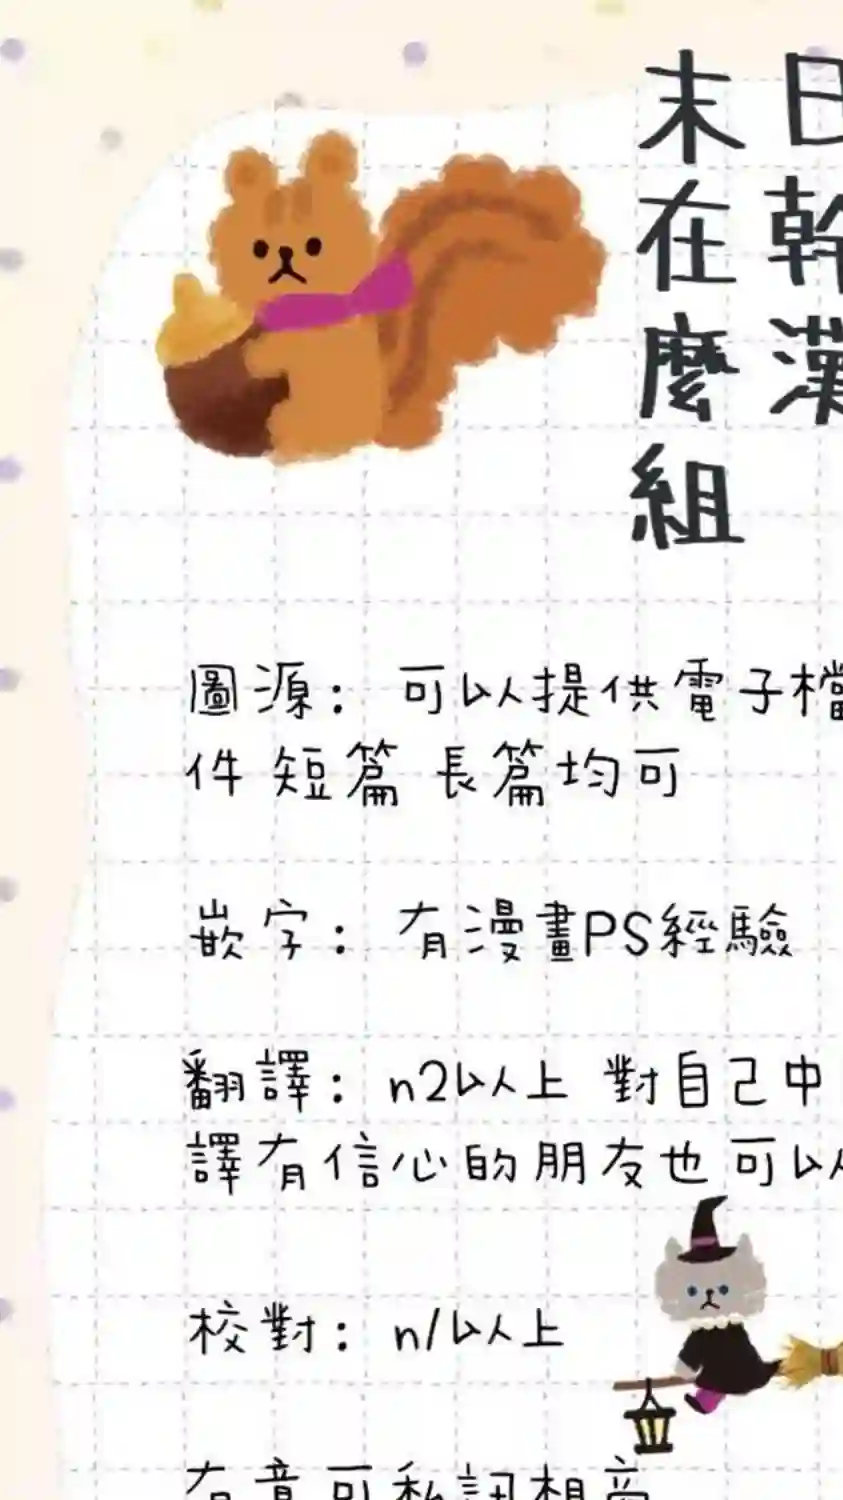 日幹漢
末在麼組
圖源： 可以提供電子檔
件 短篇 長篇均可
嵌字： 有漫畫PS經驗
翻譯： n2以上 對自己中
譯有信心的朋友也可以
校對： n1以上
有意可私訊相商